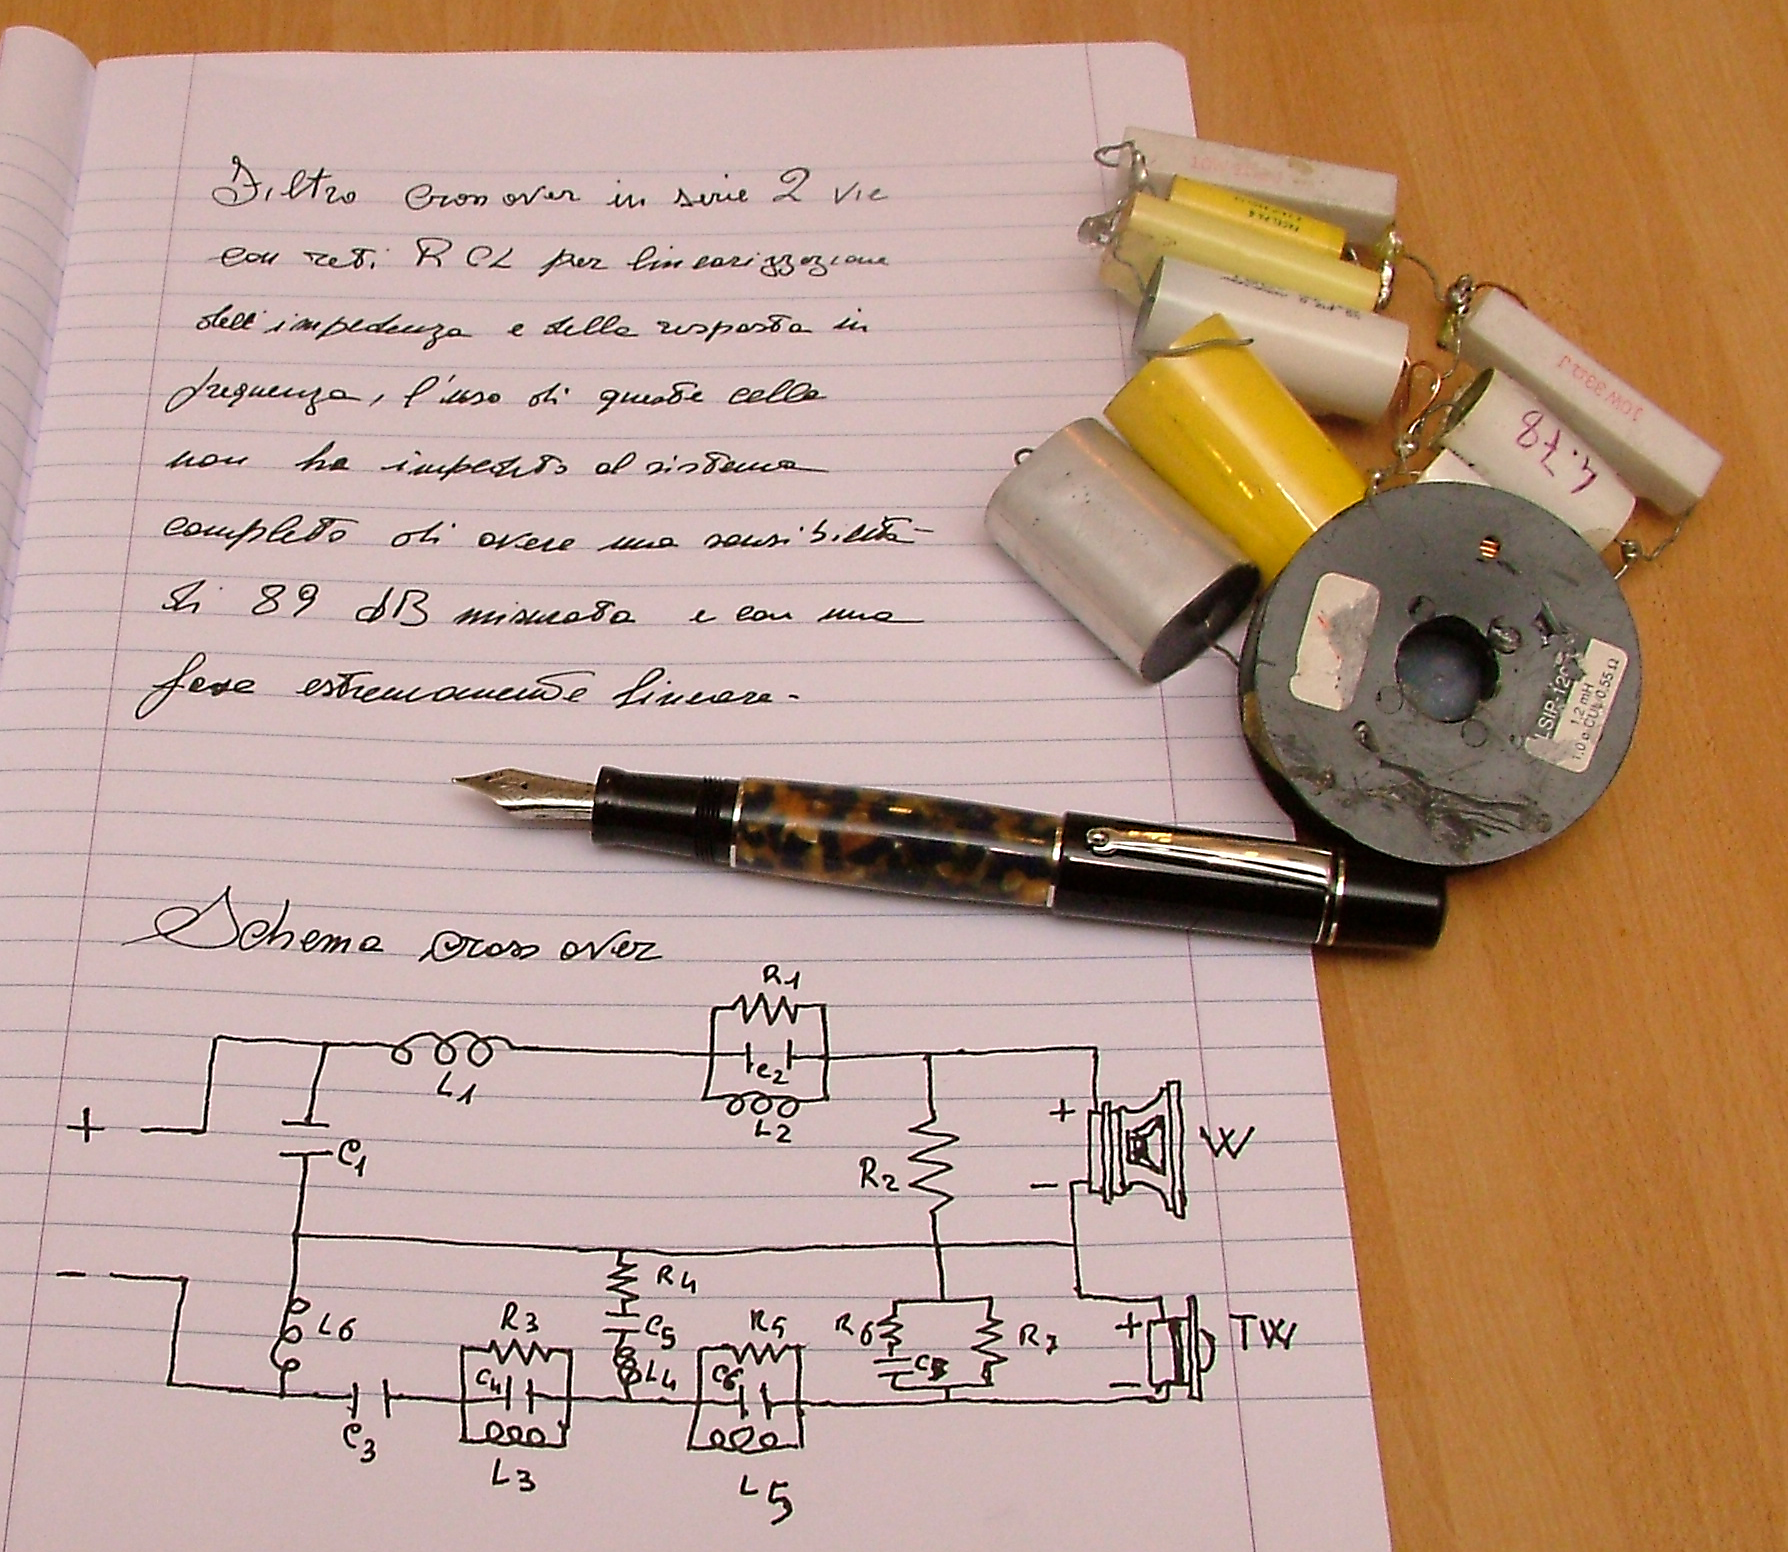 Filtro cross over in serie 2 vie
con reti RCL per linearizzazione
dell'impedenza e della risposta in
frequenza, l'uso di queste celle
non ha impedito al sistema
completo di avere una sensibilità
di 89 dB misurata e con una
fase estremamente lineare.
Schema cross over
R1
C2
L1
L2
+
C1
R2
+
-
W
-
R4
L6
R3
C5
R5
R6
R7
+
TW
C4
L4
C6
-
C3
L3
L5
10W 33ΩJ
4.78
LSIP-12
1.2 mH
0.55 Ω